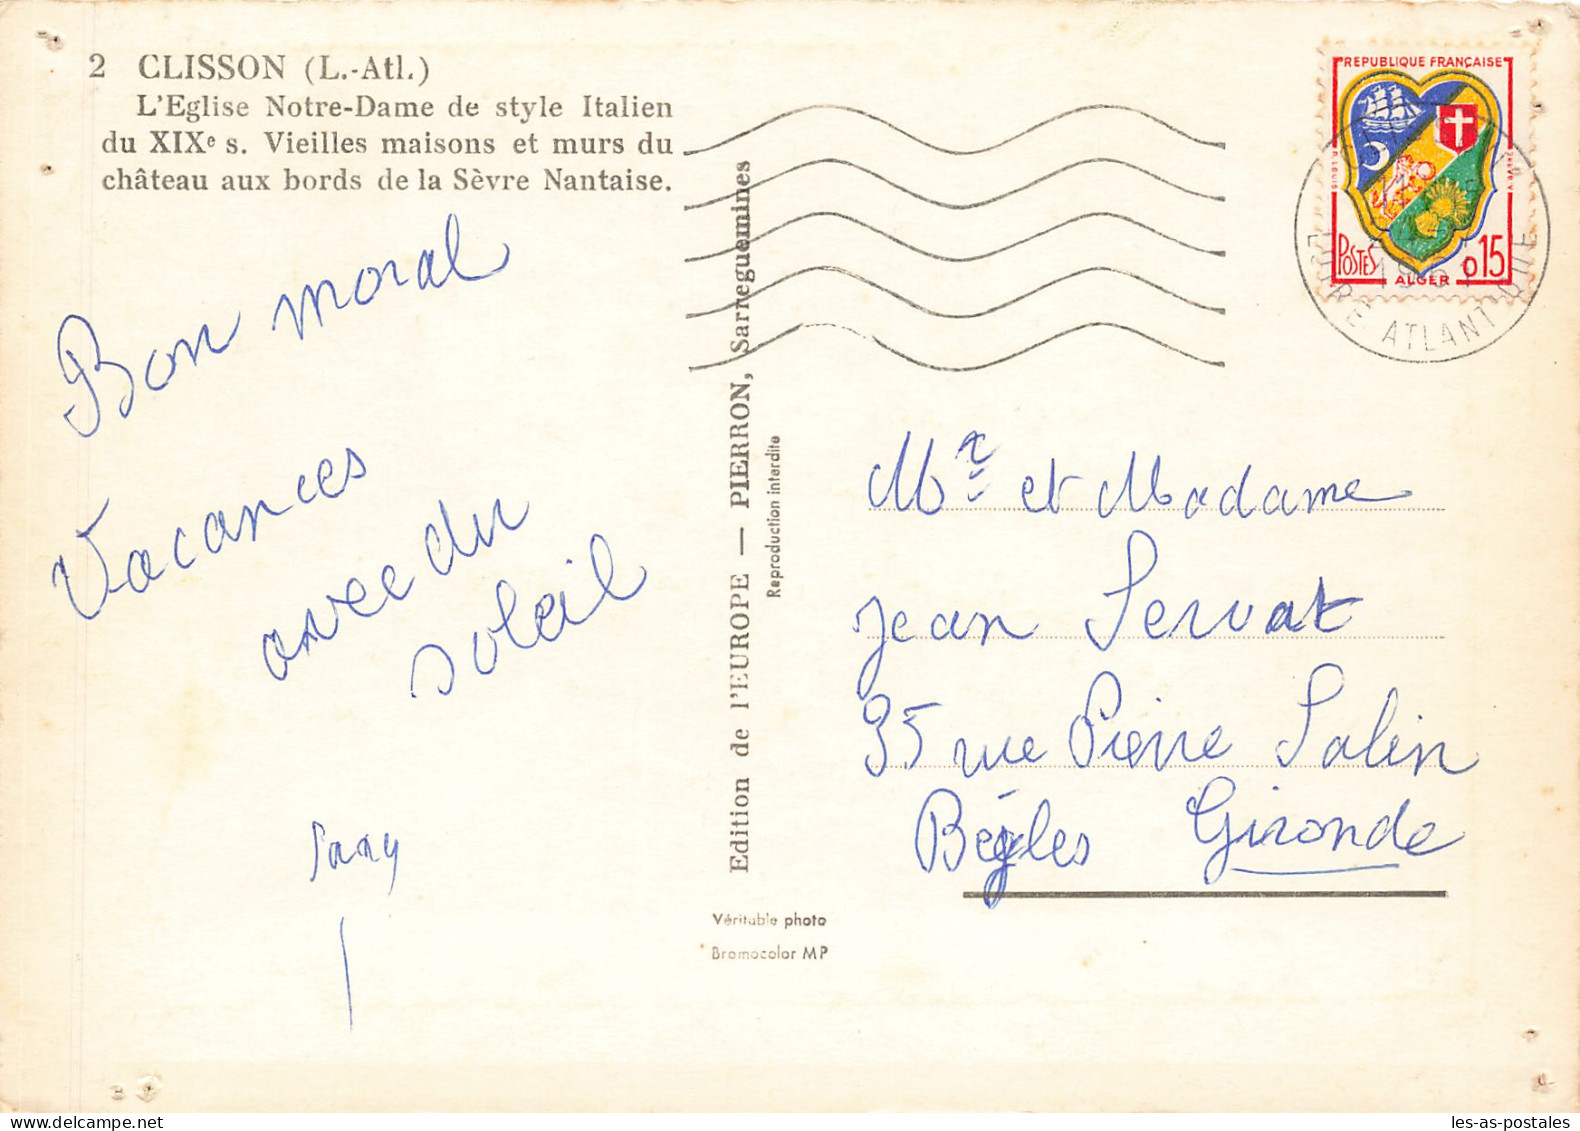 2 CLISSON (L.-Atl.)
L'Eglise Notre-Dame de style Italien
du XIXe s. Vieilles maisons et murs du
château aux bords de la Sèvre Nantaise.
Bon moral
Vacances
avec du
soleil
Edition de l'EUROPE — PIERRON, Sarreguemines
Reproduction interdite
Véritable photo
Bromocolor MP
REPUBLIQUE FRANÇAISE
POSTES
ALGER
0,15
LOIRE ATLANTIQUE
Mr et Madame
Jean Servat
35 rue Pierre Salin
Bègles Gironde
les-as-postales